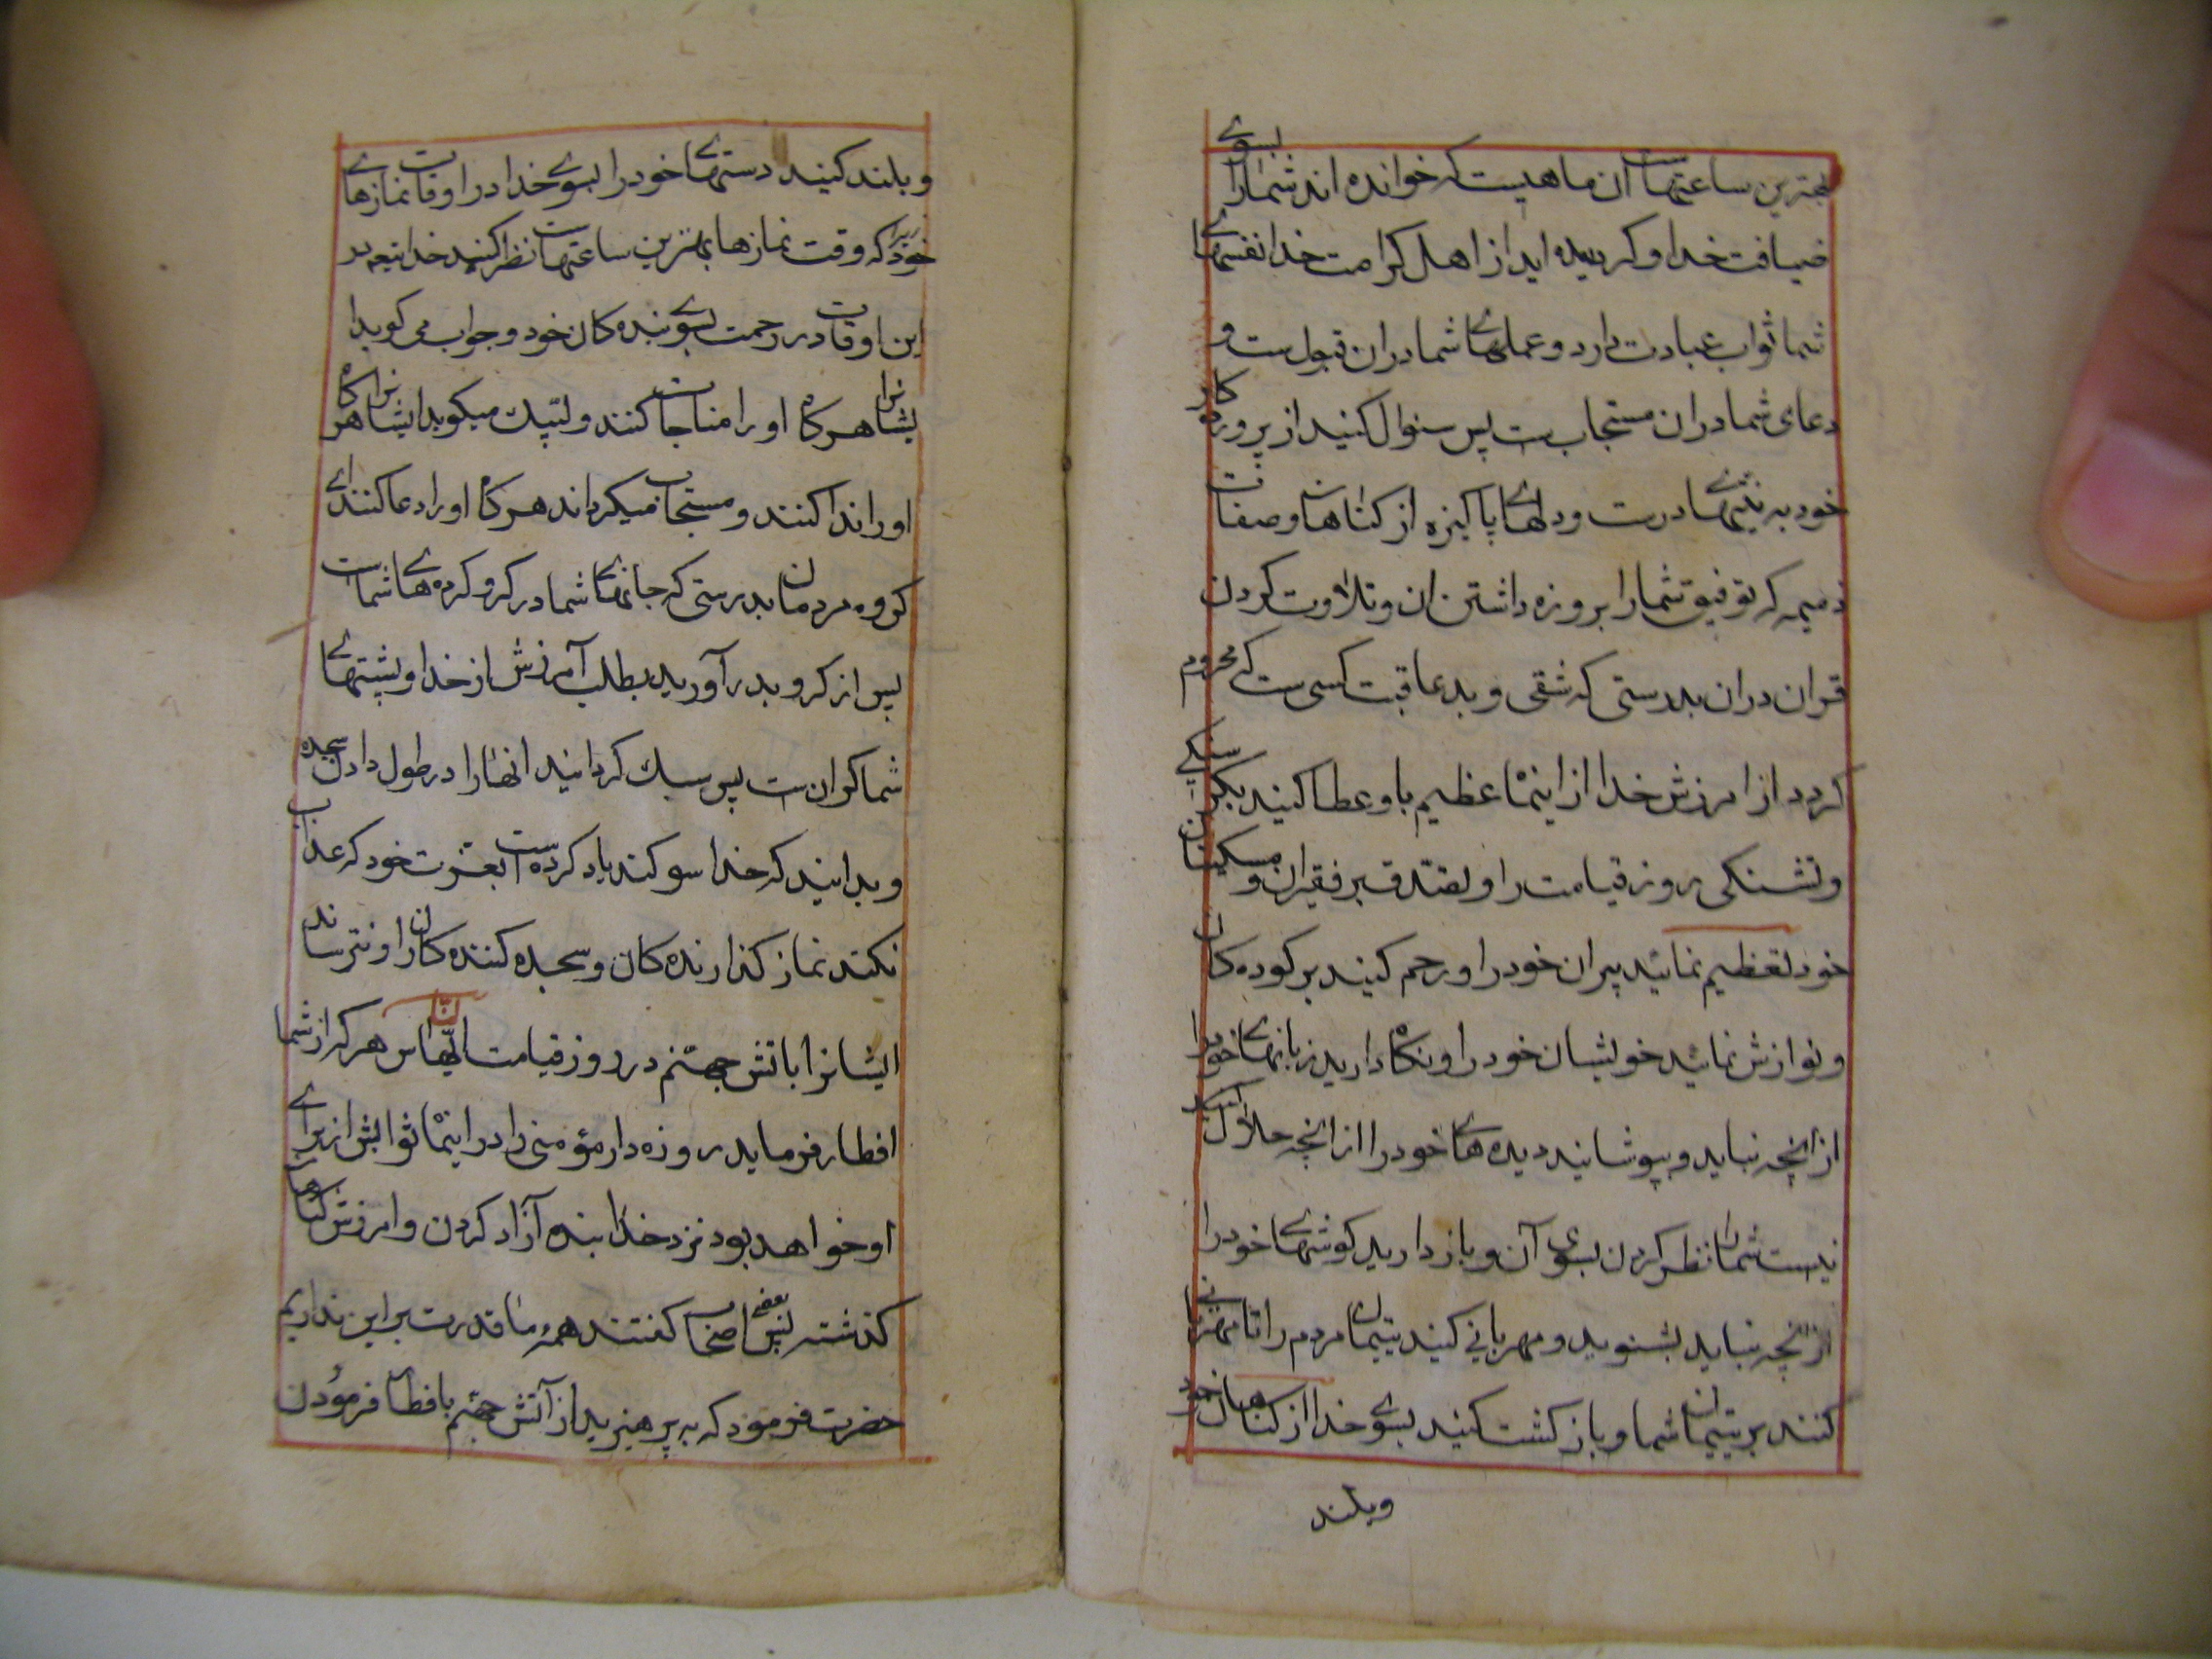 بهترین ساعتهاست ان ماهیست که خوانده اند شمارا بسوی
ضیافت خدا و کردیده اید از اهل کرامت خدا نفسهای
شما ثواب عبادت دارد و عملهای شما دران قبولست و
دعای شما دران مستجابست پس سئوال کنید از پروردکار
خود به نیتهای درست و دلهای پاکیزه از کناهان و صفات
ذمیمه که توفیق شمارا بروزه داشتن ان و تلاوت کردن
قران دران بدرستی که شقی و بد عاقبت کسی ست که محروم
کردد از امرزش خدا از اینماه عظیم یاد عطا کنید بکرسنکی
و تشنکی روز قیامت را و تصدق بر فقیران و مسکینان
خود تعظیم نمائید پیران خود را و رحم کنید بر کودهکان
و نوازش نمائید خویشان خود را و نکاه دارید زبانهای خود را
از انچه نباید و بپوشانید دیده های خود را از انچه حلال
نیست شما را نظر کردن بسوی آن و باز دارید کوشهای خود را
از انچه نباید بشنوید و مهربانی کنید یتیمان مردم را تا مهربانی
کنند بر یتیمان شما و باز کشت کنید بسوی خدا از کناهان خود
وبلند
وبلند کنید دستهای خود را بسوی خدا در اوقات نمازهای
خود زیرا که وقت نمازها بهترین ساعتهاست نظر کنند خدایتعه در
این اوقات در رحمت بسوی بنده کان خود و جواب می کوید ا
یشانرا هرکاه او را مناجات کنند و لبّیک میکوید ایشانرا هرکاه
او را ندا کنند و مستجاب میکرداند هرکاه او را دعا کنند ای
کروه مردمان بدرستی که جانهای شما در کرو کرده های شماست
پس از کرو بدر آورید بطلب آمرزش از خدا و پشتهای
شما کرانست پس سبک کردانید انهارا در طول دادن سجده
و بدانید که خدا سوکند یاد کرده است بعزت خود که عذاب
نکند نماز کذارنده کان و سجده کننده کانرا و نترساند
ایشانرا باتش جهنم در روز قیامت ایّهاالنّاس هر که از شما
افطار فرماید روزه دار مؤمنی را در اینماه ثوابش از برای
او خواهد بود نزد خدا بنده آزاد کردن و امرزش کناهان
کذشته پس بعضی اصحاب کفتند همه ما قدرت بر این نداریم
حضرت فرمود که به پرهیزید از آتش جهنم بافطار فرمودن